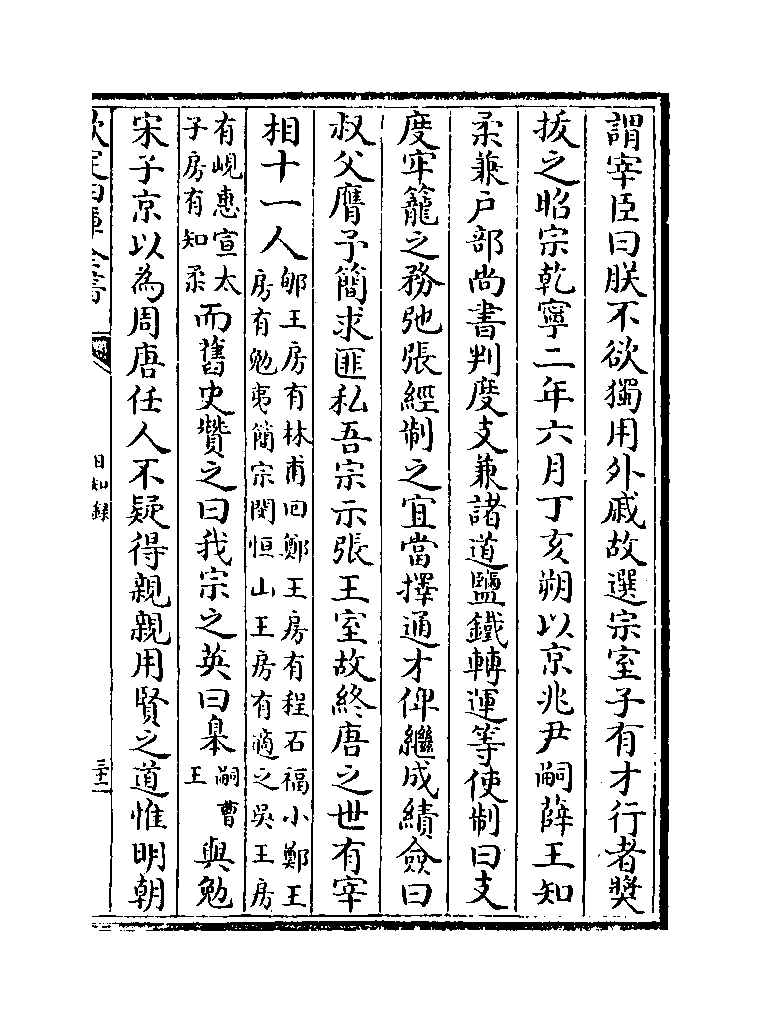 謂宰臣曰朕不欲獨用外戚故選宗室子有才行者奬
拔之昭宗乾寧二年六月丁亥朔以京兆尹嗣薛王知
柔兼戶部尚書判度支兼諸道鹽鐵轉運等使制曰支
度牢籠之務弛張經制之宜當擇通才俾繼成績僉曰
叔父膺予簡求匪私吾宗示張王室故終唐之世有宰
相十一人郇王房有林甫回鄭王房有程石福小鄭王房有勉夷簡宗閔恒山王房有適之吳王房
有峴惠宣太子房有知柔而舊史贊之曰我宗之英曰皋嗣曹王與勉
宋子京以為周唐任人不疑得親親用賢之道惟明朝
欽定四庫全書
日知錄